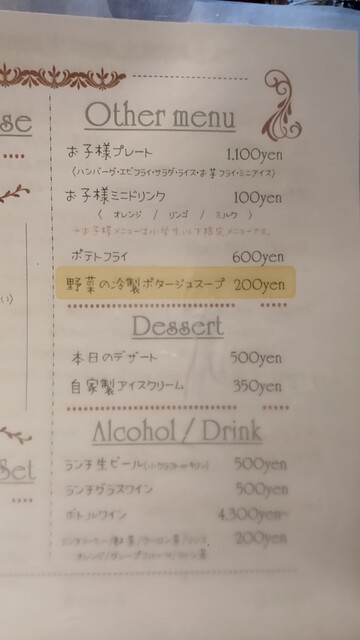 Other menu
お子様プレート 1,100yen
(ハンバーグ・エビフライ・サラダ・ライス・お芋フライ・ミニアイス)
お子様ミニドリンク 100yen
( オレンジ / リンゴ / ミルク )
ポテトフライ 600yen
野菜の冷製ポタージュスープ 200yen
Dessert
本日のデザート 500yen
自家製アイスクリーム 350yen
Alcohol / Drink
ランチ生ビール 500yen
ランチグラスワイン 500yen
ボトルワイン 4,300yen~
200yen
se
Set